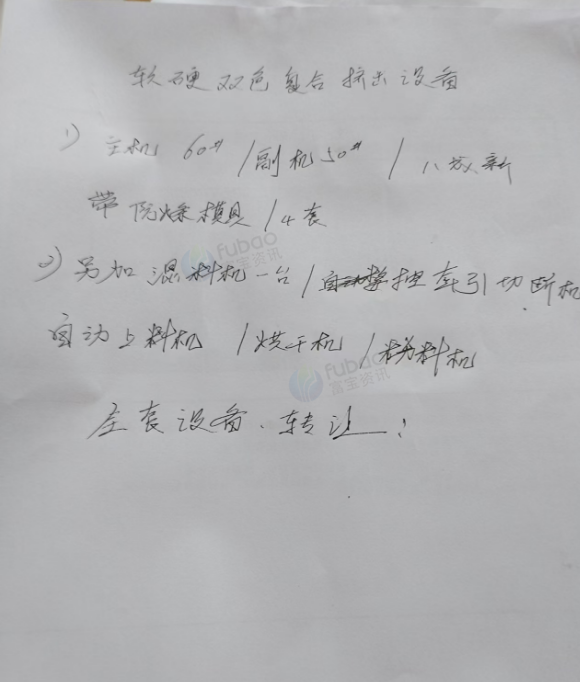 软硬双色复合挤出设备
1) 主机 60# /副机50# / 八成新
带阮燥模具 /4套
2) 另加混料机一台/自动控牵引切断机
自动上料机 /烘干机 /粉料机
全套设备、转让!
fubao
富宝资讯
fubao
富宝资讯